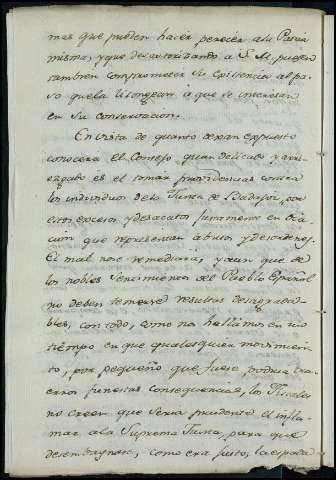 mas que pueden hacer perecer a la Patria
misma, y que desautorizando a S. M. pueden
tambien comprometer su existencia al pa-
so que la lisongean a que se interesan
en su conservacion.
En vista de quanto dexan expuesto
conocerá el Consejo quan delicado y arri-
esgado es el tomar providencias contra
los individuos de la Junta de Badajoz, por
estos excesos y desacatos juramente en oca-
cion que representan abusos y desordenes.
El mal no se remediara, y aun que de
los nobles sentimientos del Pueblo Español
no deben temerse resultas desagrada-
bles, con todo, como no hallamos en un
tiempo en que qualesquiera movimien-
to, por pequeño que fuese, podria tra-
ernos funestas consequencias, los Fiscales
no creen que seria prudente el infla-
mar a la Suprema Junta, para que
desembaynase, como era justo, la espada